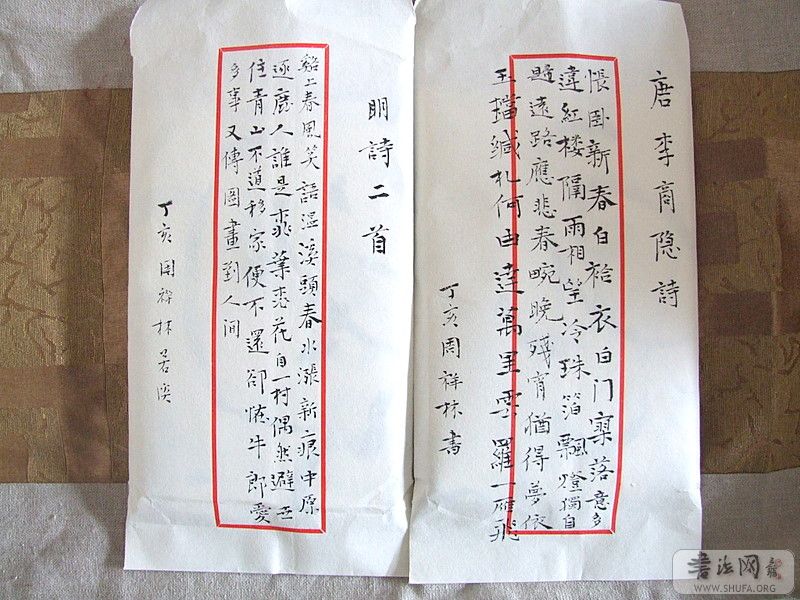 唐李商隐詩
悵卧新春白袷衣白门寥落意多
違红楼隔雨相望冷珠箔飄燈獨自
遠路應悲春晼晚殘宵猶得夢依
玉璫缄札何由達萬里雲羅一雁飛
丁亥周祥林書
明詩二首
谿上春風笑語温溪頭春水漲新痕中原
逐鹿人誰是桃葉桃花自一村偶然避世
住青山不道移家便不還卻怪牛郎愛
多事又傳圖畫到人间
丁亥周祥林
書法网
WWW.SHUFA.ORG